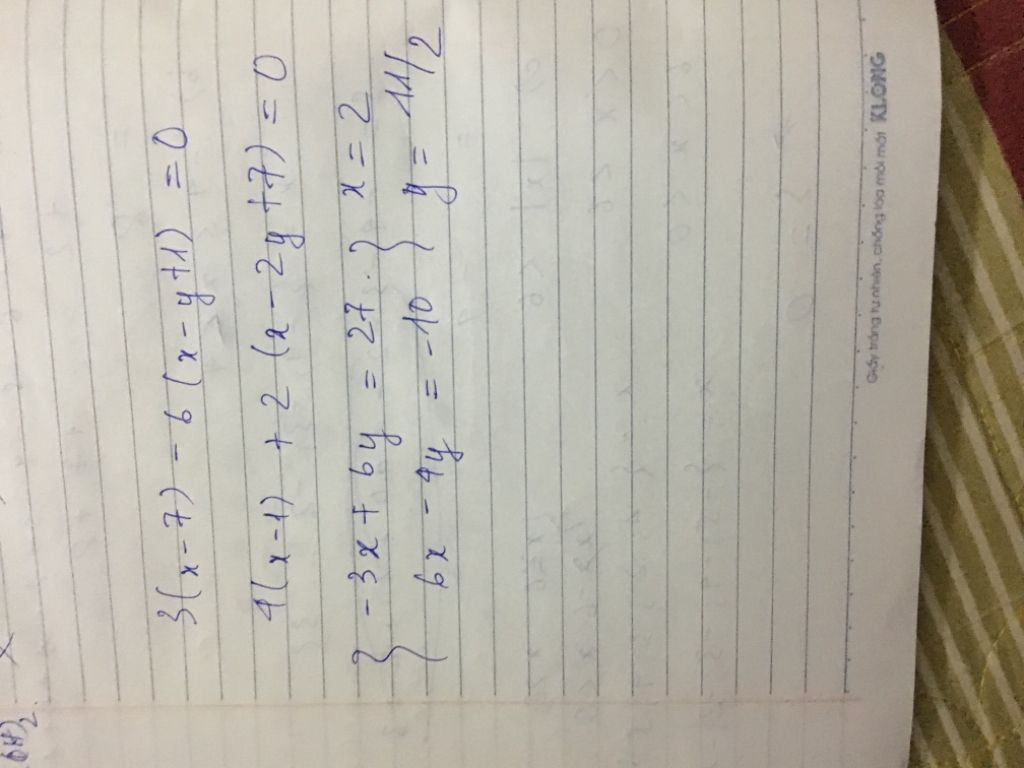 3(x-7) - 6(x-y+1) = 0
4(x-1) + 2(x-2y+7) = 0
{ -3x + 6y = 27. } x = 2
{ 6x - 4y = -10 } y = 11/2
Giấy trắng tự nhiên, chống loá mỏi mắt KLONG